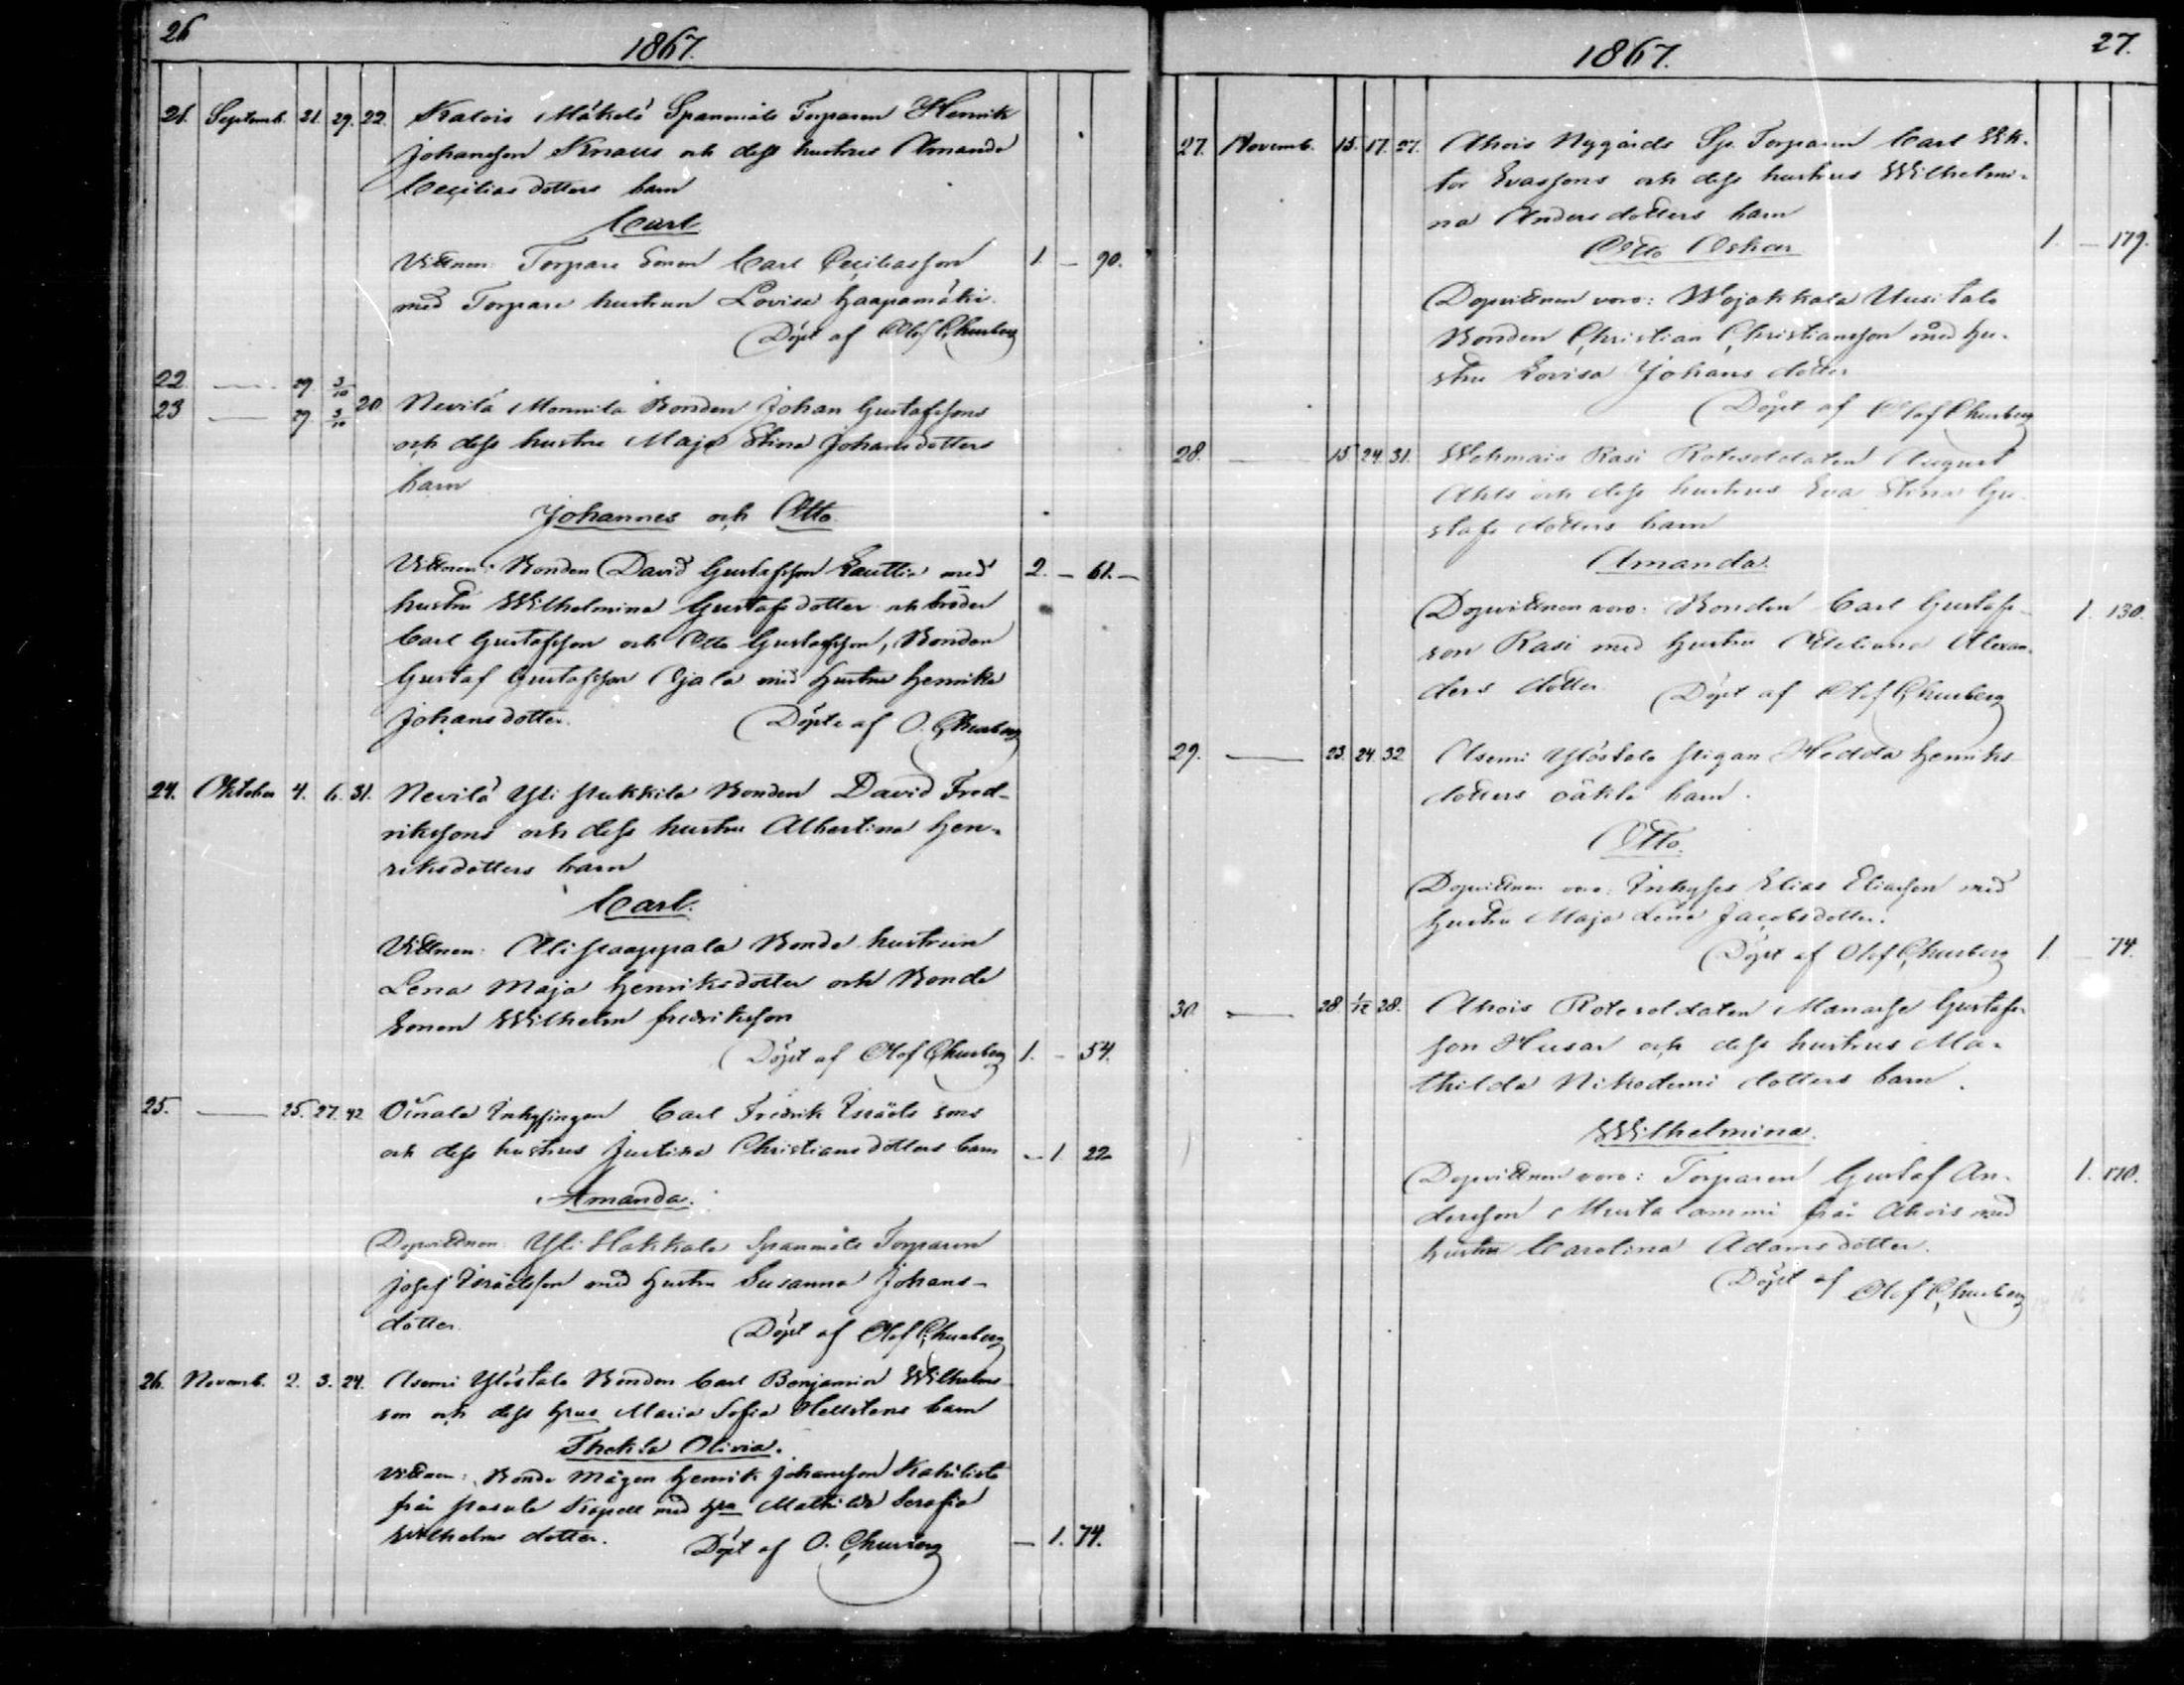 26
1867.
21. Septemb. 21. 29. 22. Kalois Mäkelä Spanmåls Torparen Henrik
Johansson Knaus och dess hustrus Amanda
Ceciliasdotters barn
Carl
Vittnen: Torpare Sonen Carl Ceciliasson 1. – 90.
med Torpare hustrun Lovisa Haapamäki.
Döpt af Olof Churberg
22 — 29. 3/10
23 — 29. 3/10 20 Nevilä Monnila Bonden Johan Gustafssons
och dess hustru Maja Stina Johansdotters
barn
Johannes och Otto.
Vittnen: Bonden David Gustafsson Lauttia med 2. – 61. –
hustru Wilhelmina Gustafsdotter och bröder
Carl Gustafsson och Otto Gustafsson, Bonden
Gustaf Gustafsson Ojala med hustru Henrika
Johansdotter. Döpte af O. Churberg
24. Oktober 4. 6. 31. Nevilä Yli Pukkila Bonden David Fred-
rikssons och dess hustru Albertina Hen-
riksdotters barn
Carl.
Vittnen: Ali Paappala Bonde hustrun
Lena Maja Henriksdotter och Bonde
Sonen Wilhelm Fredriksson
Döpt af Olof Churberg 1. – 54.
25. — 25. 27. 42 Oinala Inhysingen Carl Fredrik Israels sons
och dess hustrus Justina Christiansdotters barn – 1 22
Amanda.
Dopvittnen: Yli Hakkala Spanmåls Torparen
Josef Israelsson med hustru Susanna Johans-
dotter. Döpt af Olof Churberg
26. Novemb. 2. 3. 24. Asemi Ylöstalo Bonden Carl Benjamin Wilhelms-
son och dess hrus Maria Sofia Hellstens barn
Thekla Olivia.
Vittnen: Bonde Mågen Henrik Johansson Kahilisto
från Kapell med hra Mathilda Serafia
Wilhelms dotter. Döpt af O. Churberg – 1. 74.
1867. 27.
27. Novemb. 15. 17. 27. Ahois Nygårds Sp. Torparen Carl Vik-
tor Evassons och dess hustrus Wilhelmi-
na Andersdotters barn
Otto Oskar 1. – 179.
Dopvittnen voro: Wojakkala Uusitalo
Bonden Christian Christiansson med hu-
stru Lovisa Johans dotter
Döpt af Olof Churberg
28. — 15 24. 31. Wehmais Rasi Rotesoldaten August
Ahls och dess hustrus Eva Stina Gu-
stafs dotters barn
Amanda
Dopvittnen voro: Bonden Carl Gustafs- 1. 130.
son Rasi med hustru Alexan-
ders dotter. Döpt af Olof Churberg
29. — 23. 24. 32 Asemi Ylöstalo pigan Hedda Henriks
dotters oäkta barn.
Otto.
Dopvittnen voro: Inhyses Elias Eliasson med
hustru Maja Lena Jacobsdotter.
Döpt af Olof Churberg 1. – 74.
30. — 28. 1/12 28. Ahois Rotesoldaten Manasse Gustafs-
son Husar och dess hustrus Ma-
thilda Nikodemi dotters barn.
Wilhelmina.
Dopvittnen voro: Torparen Gustaf An- 1. 170.
dersson Mustalammi från Ahois med
hustru Carolina Adamsdotter.
Döpt af Olof Churberg